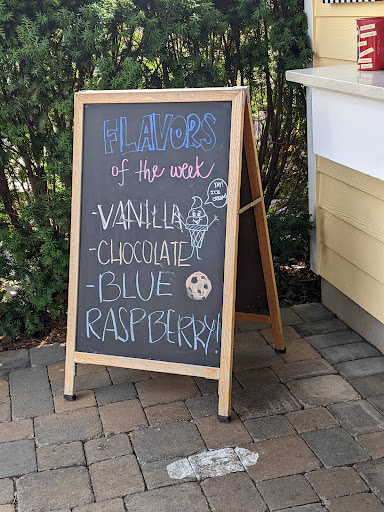 FLAVORS
of the week
-VANILLA
-CHOCOLATE
-BLUE
RASPBERRY!
YAY
ICE
CREAM!